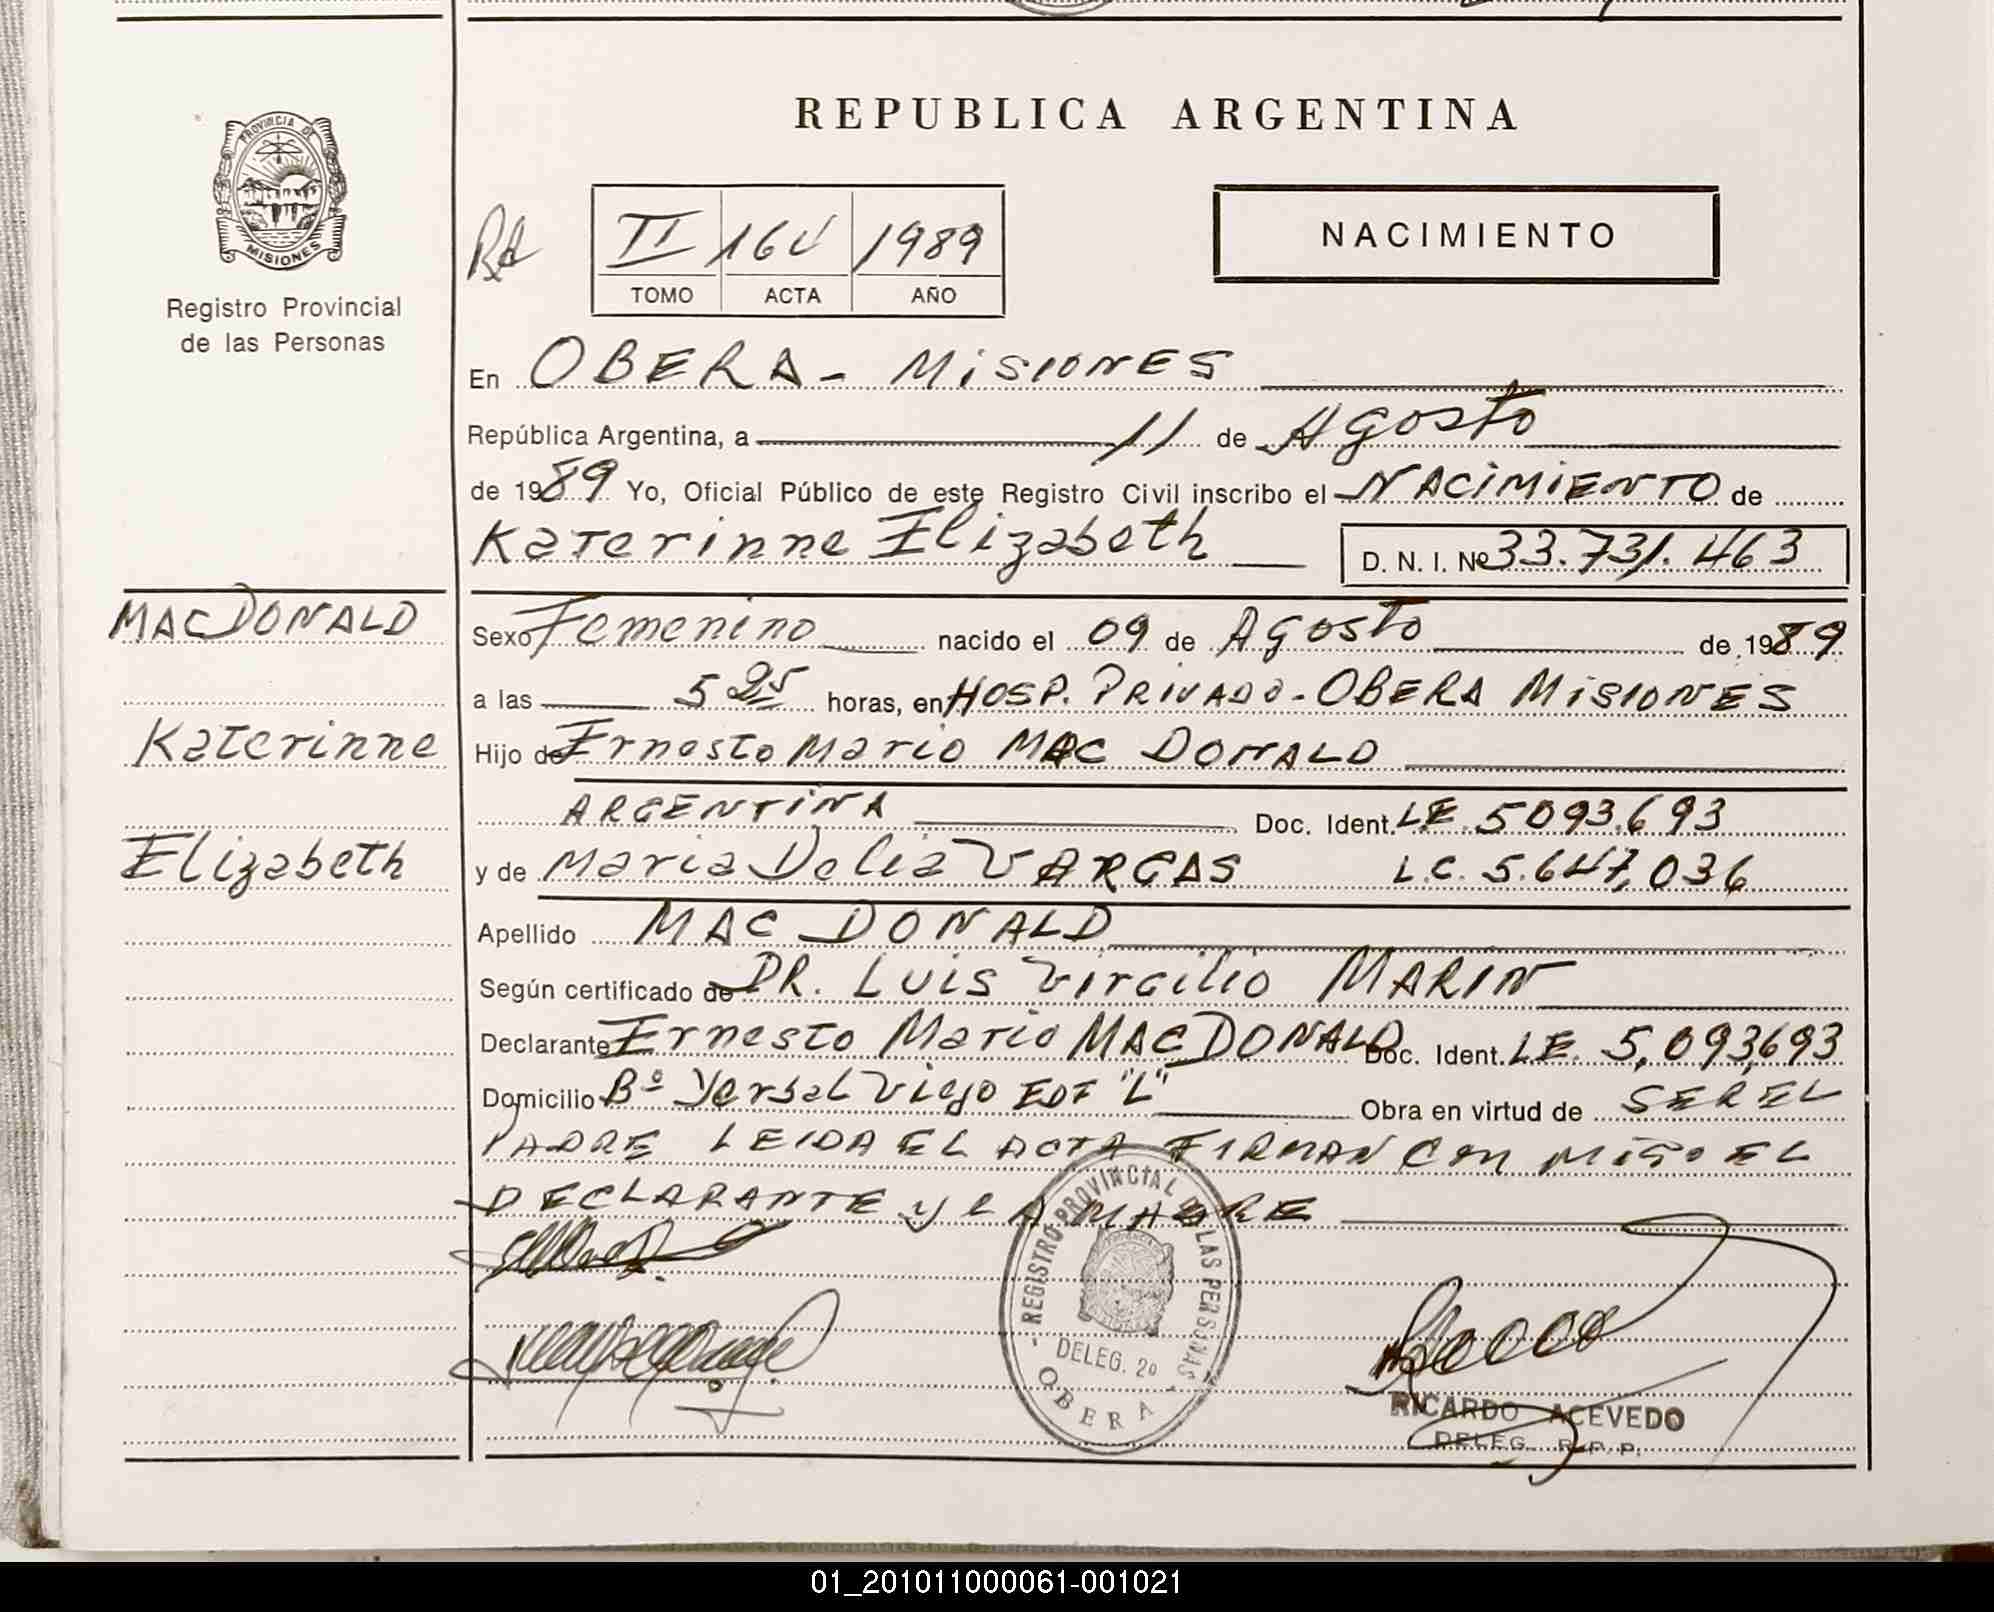 REPUBLICA ARGENTINA
PROVINCIA DE
MISIONES
Registro Provincial
de las Personas
II 164 1989
TOMO ACTA AÑO
NACIMIENTO
En OBERA - MISIONES
República Argentina, a 11 de Agosto
de 1989 Yo, Oficial Público de este Registro Civil inscribo el NACIMIENTO de
Katerinne Elizabeth D. N. I. Nº 33.731.463
MAC DONALD
Katerinne
Elizabeth
Sexo Femenino nacido el 09 de Agosto de 1989
a las 5 25 horas, en HOSP. PRIVADO - OBERA MISIONES
Hijo de Ernesto Mario MAC DONALD
ARGENTINA Doc. Ident. LE 5093.693
y de Maria Delia VARGAS L.C. 5.647,036
Apellido MAC DONALD
Según certificado de DR. LUIS Virgilio MARIN
Declarante Ernesto Mario MAC DONALD Doc. Ident. LE. 5,093,693
Domicilio Bº Yerbal Viejo EDF "L" Obra en virtud de SER EL
PADRE LEIDA EL ACTA FIRMAN con migo EL
DECLARANTE y LA MADRE
REGISTRO PROVINCIAL DE LAS PERSONAS
DELEG. 2º
OBERA
RICARDO ACEVEDO
DELEG. R. P. P.
01_201011000061-001021